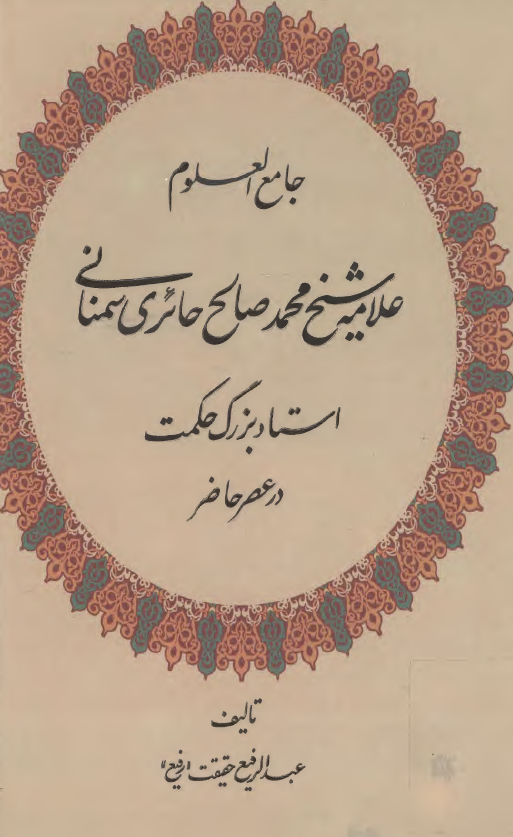 جامع العلوم
علامه شیخ محمد صالح حائری سمنانی
استاد بزرگ حکمت
در عصر حاضر
تالیف
عبدالرفیع حقیقت «رفیع»